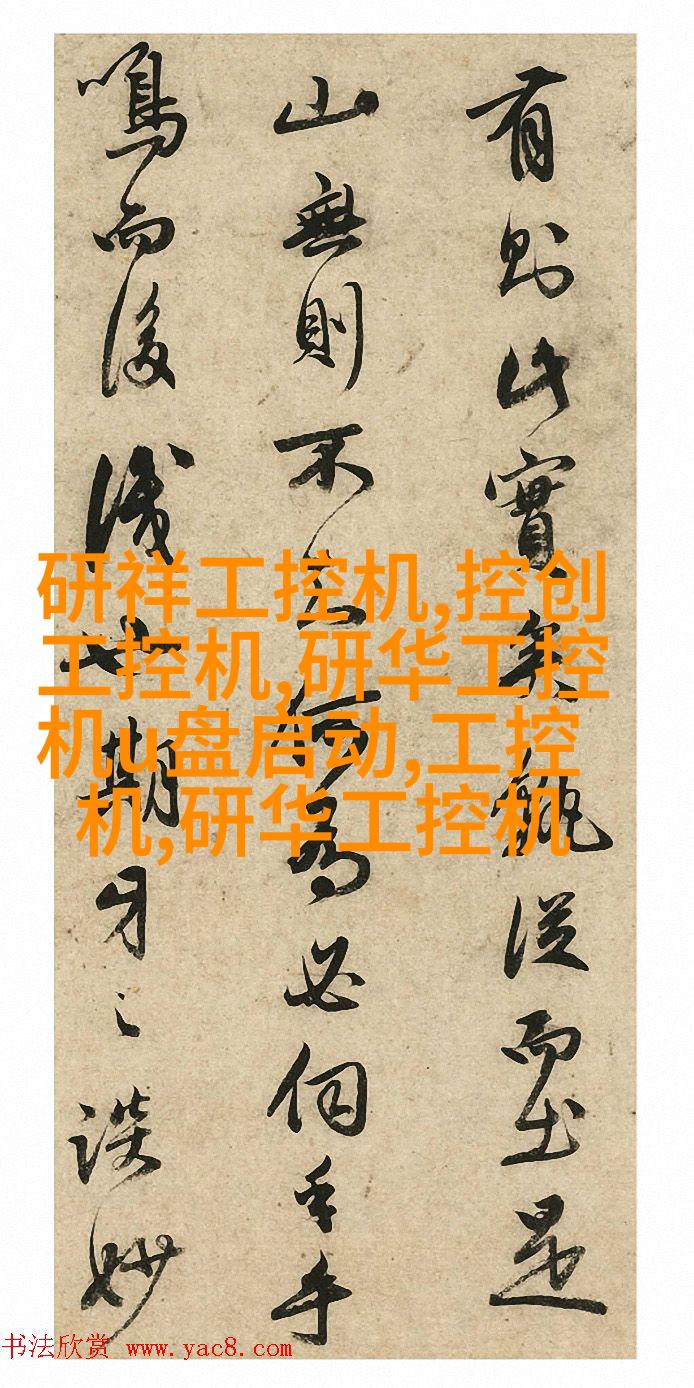 有則此實矣從而出是
山無則不何為必伺手乎
鳴而後期牙之談妙
研祥工控机,控创
工控机,研华工控
机u盘启动,工控
机,研华工控机
书法欣赏 www.yac8.com